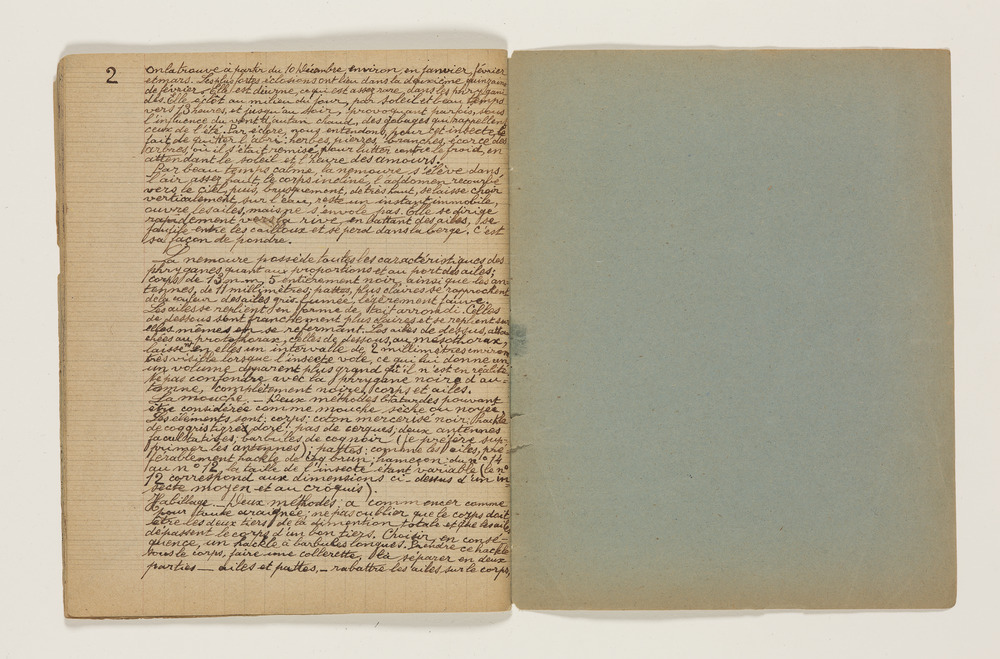 2
On la trouve à partir du 10 Décembre environ, en janvier, février
et mars. Les plus fortes éclosions ont lieu dans la deuxième quinzaine
de février. Elle est diurne, ce qui est assez rare, dans les phrygani-
des. Elle éclot au milieu du jour, par soleil et beau temps
vers 13 heures, et jusqu'au soir, provoquant parfois, sous
l'influence du vent d'autan chaud, des gobages qui rappellent
ceux de l'été. Par éclore, nous entendons, pour cet insecte, le
fait de quitter l'abri: herbes, pierres, branches, écorce des
arbres, où il s'était remisé, pour lutter contre le froid, en
attendant le soleil et l'heure des amours.
Par beau temps calme, la nemoure s'élève dans
l'air assez haut, le corps incliné, l'abdomen recourbé
vers le ciel, puis, brusquement, de très haut, se laisse choir
verticalement, sur l'eau, reste un instant immobile,
ouvre les ailes, mais ne s'envole pas. Elle se dirige
rapidement vers la rive, en battant des ailes, se
faufile entre les cailloux et se perd dans la berge. C'est
sa façon de pondre.
La nemoure possède toutes les caractéristiques des
phryganes, quant aux proportions et au port des ailes;
corps de 13 m.m, 5 entièrement noir, ainsi que les an
tennes, de 11 millimètres; pattes, plus claires se rapprochent
de la couleur des ailes gris-fumée, légèrement fauve.
Les ailes se replient en forme de toit arrondi. Celles
de dessous sont franchement plus claires et se replient sur
elles mêmes en se refermant. Les ailes de dessus, atta
chées au protothorax, celles de dessous, au mésothorax,
laissent en elles un intervalle de 2 millimètres environ
très visible lorsque l'insecte vole, ce qui lui donne un
un volume apparent plus grand qu'il n'est en réalité.
Ne pas confondre avec la phrygane noire d'au-
tomne, complètement noire, corps et ailes.
La mouche. — Deux méthodes batardes pouvant
être considérée comme mouche sèche ou noyée.
Les éléments sont: corps: coton mercerisé noir. hackle
de coq gris tigré, doré; pas de cerques; deux antennes
facultatives, barbules de coq noir (Je préfère sup-
primer les antennes); pattes: comme les ailes, pré-
férablement hackle de coq brun; hameçon: du n° 14
au n° 12, la taille de l'insecte étant variable (le n°
12 correspond aux dimensions ci-dessus d'un in
secte moyen et au croquis).
Habillage. — Deux méthodes: a commencer comme
pour toute araignée; ne pas oublier que le corps doit
être les deux tiers de la dimention totale et que les ailes
dépassent le corps d'un bon tiers. Choisir, en consé-
quence, un hackle à barbules longues. Prendre ce hackle
sous le corps, faire une collerette, la séparer en deux
parties — ailes et pattes, — rabattre les ailes sur le corps,